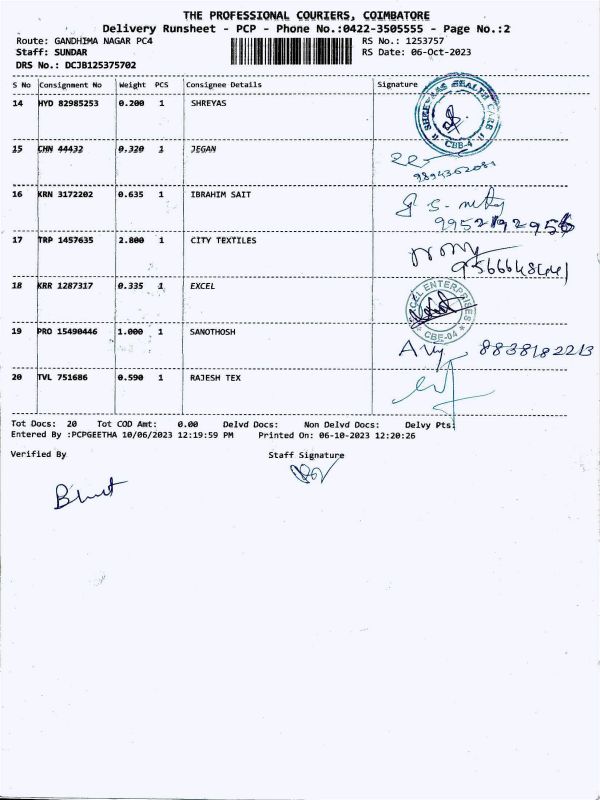 THE PROFESSIONAL COURIERS, COIMBATORE
Delivery Runsheet - PCP - Phone No.:0422-3505555 - Page No.:2
Route: GANDHIMA NAGAR PC4 RS No.: 1253757
Staff: SUNDAR RS Date: 06-Oct-2023
DRS No.: DCJB125375702
S No Consignment No Weight PCS Consignee Details Signature
14 HYD 82985253 0.200 1 SHREYAS
SHREYAAS HEALTH CARE
CBE-4
15 CHN 44432 0.320 1 JEGAN
9894362081
16 KRN 3172202 0.635 1 IBRAHIM SAIT
9952192956
17 TRP 1457635 2.800 1 CITY TEXTILES
18 KRR 1287317 0.335 1 EXCEL
EXCEL ENTERPRISES
CBE-04
19 PRO 15490446 1.000 1 SANOTHOSH
8838182213
20 TVL 751686 0.590 1 RAJESH TEX
Tot Docs: 20 Tot COD Amt: 0.00 Delvd Docs: Non Delvd Docs: Delvy Pts:
Entered By :PCPGEETHA 10/06/2023 12:19:59 PM Printed On: 06-10-2023 12:20:26
Verified By Staff Signature